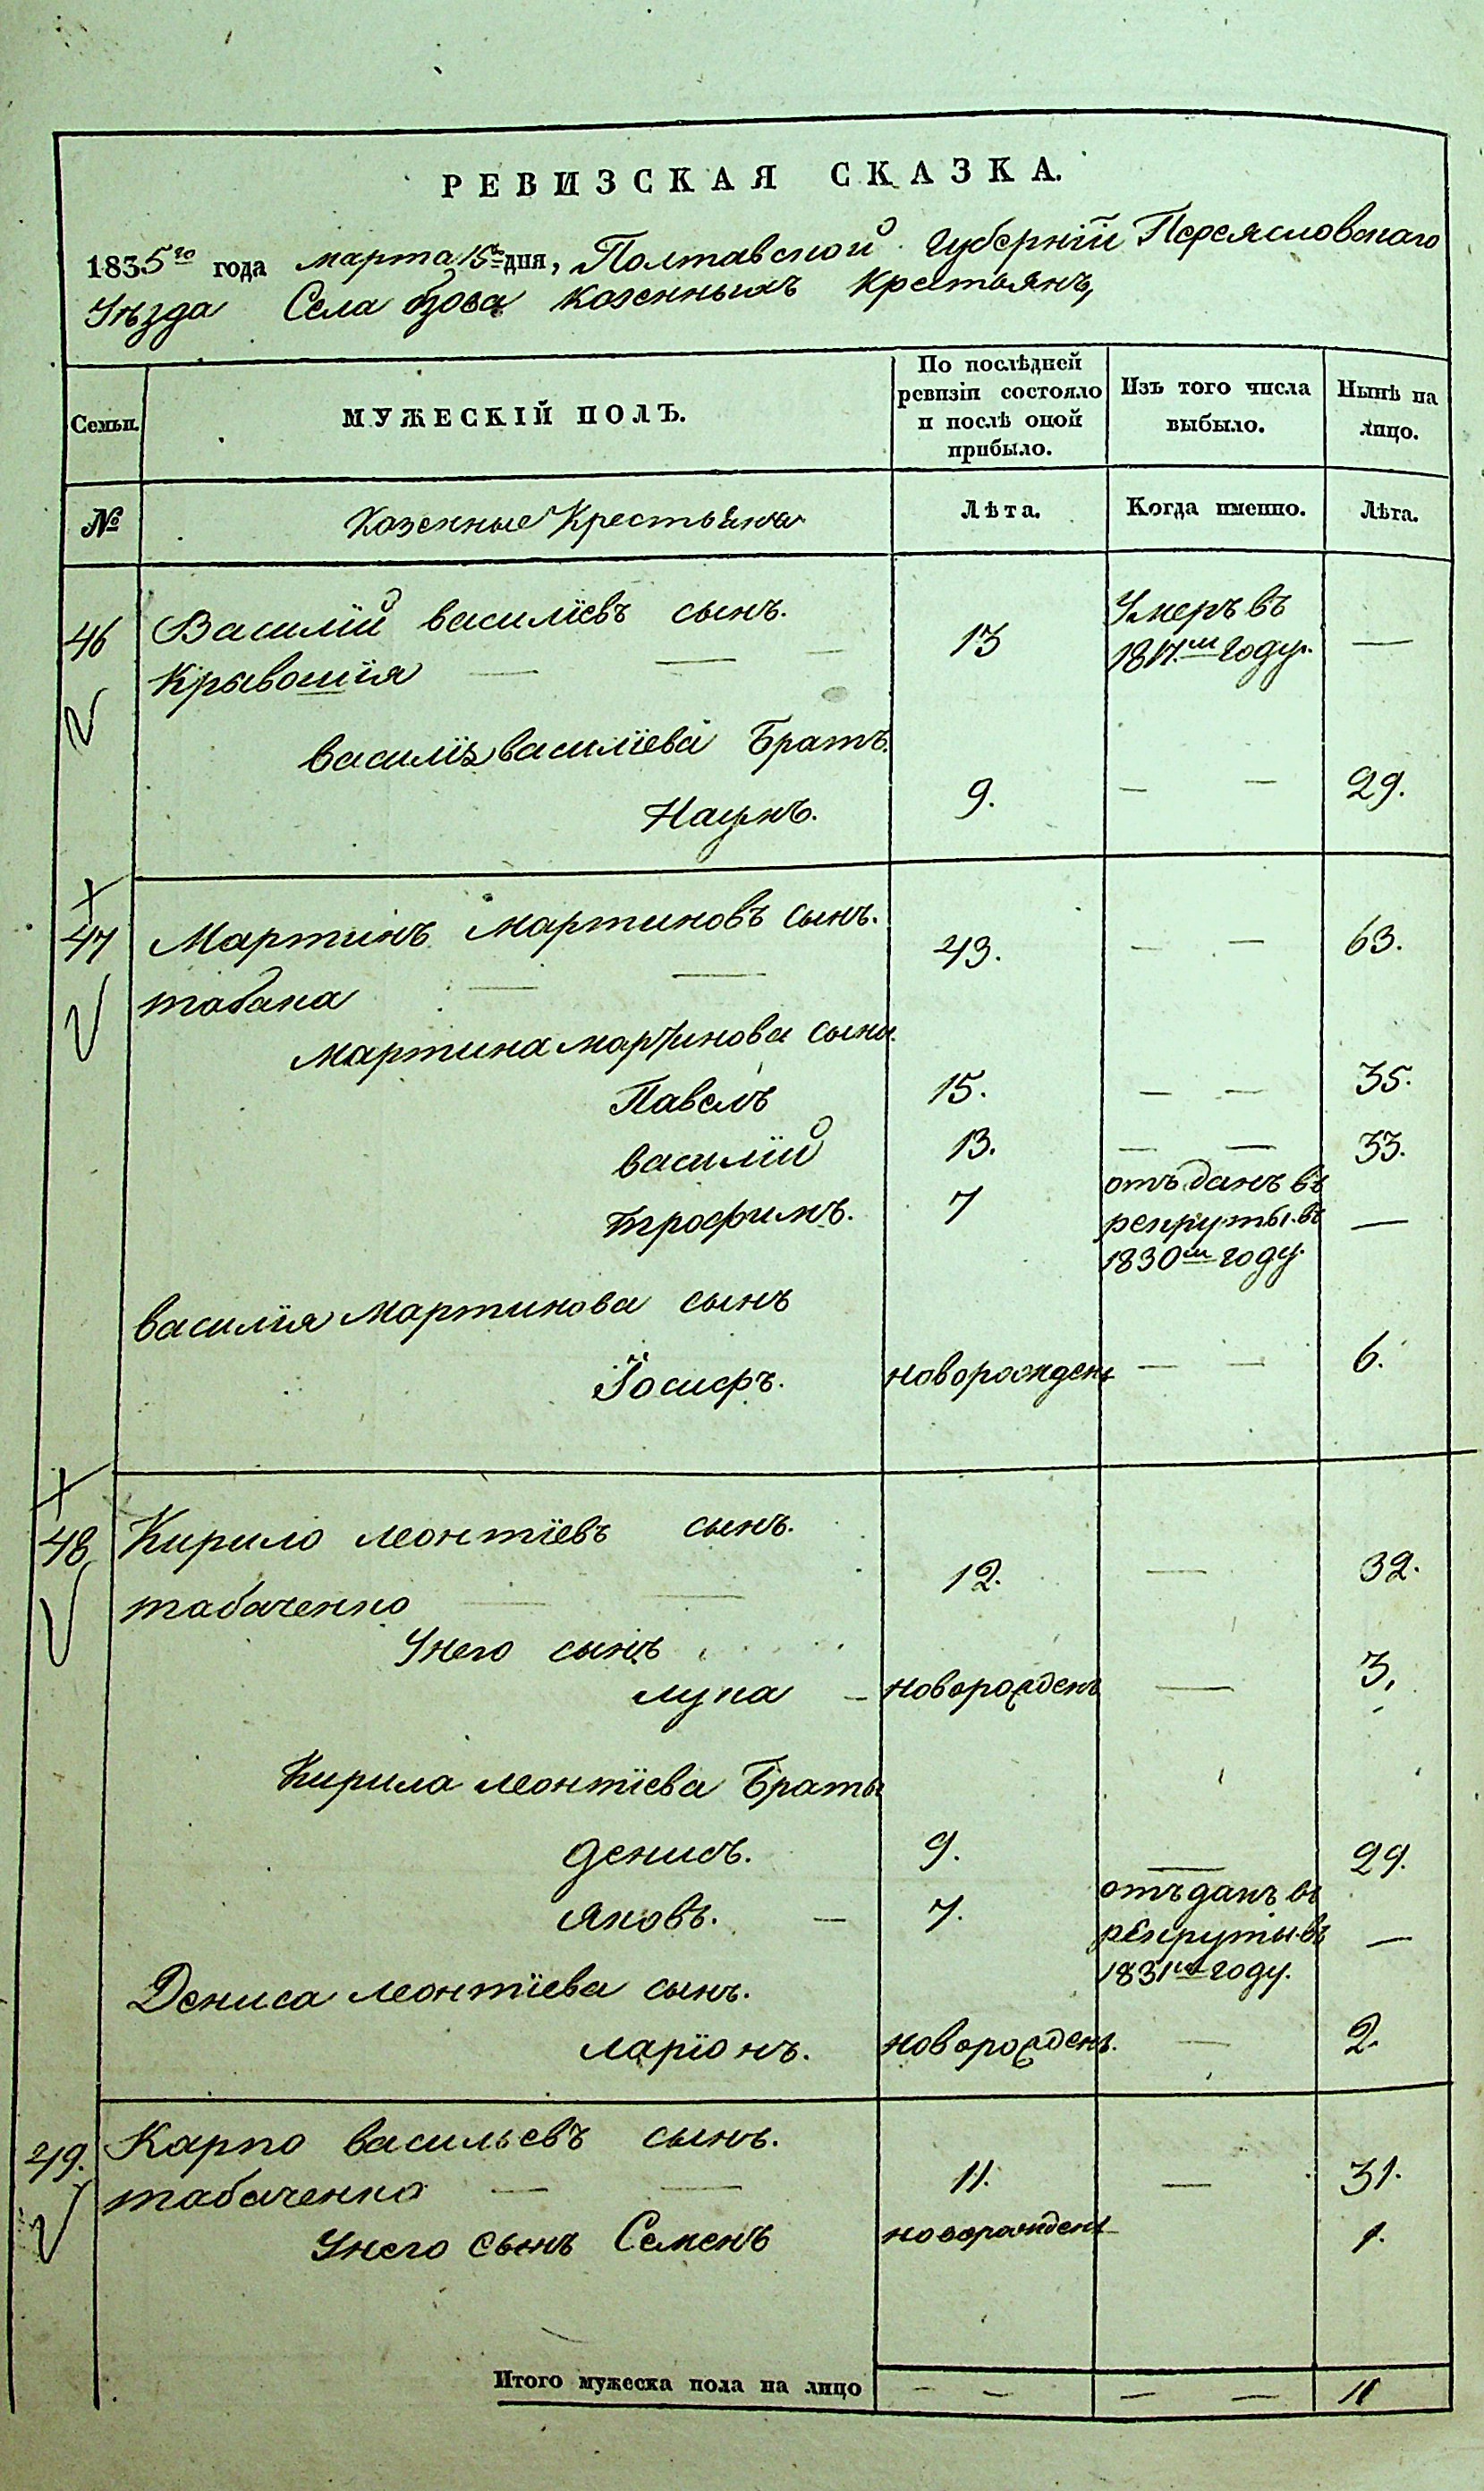 РЕВИЗСКАЯ СКАЗКА.
1835го года марта 15го дня, Полтавской Губернїи Переясловскаго
Уѣзда Села бзова казенныхъ крестьянъ,
Семьи.
МУЖЕСКІЙ ПОЛЪ.
По послѣдней ревизіи состояло и послѣ оной прибыло.
Изъ того числа выбыло.
Нынѣ на лицо.
№
Казенные Крестьяна
Лѣта.
Когда именно.
Лѣта.
46 Василїй василїевъ сынъ.
Кривошїя — — — 13 Умеръ въ 1817м году. —
василїя василїева Братъ
Наумъ. 9. — — 29.
47 Мартинъ мартиновъ сынъ.
табака — — 43. — — 63.
мартина мартинова сыны
Павелъ 15. — — 35.
василїй 13. — — 33.
трофимъ. 7 отъданъ въ рекруты въ 1830м году. —
василїя мартинова сынъ
Їосифъ. новорожденъ — — 6.
48 Кирило леонтїевъ сынъ.
табаченко — — 12. — 32.
Унего сынъ
лука — новорожденъ — 3,
Кирила леонтїева Браты
денисъ. 9. — 29.
яковъ. — 7. отъданъ въ рекруты въ 1831м году. —
Дениса леонтїева сынъ.
ларїонъ. новорожденъ. — 2.
49. Карпо васильевъ сынъ.
табаченко — — 11. — 31.
Унего сынъ Семенъ новорожденъ 1.
Итого мужеска пола на лицо — — — — 11